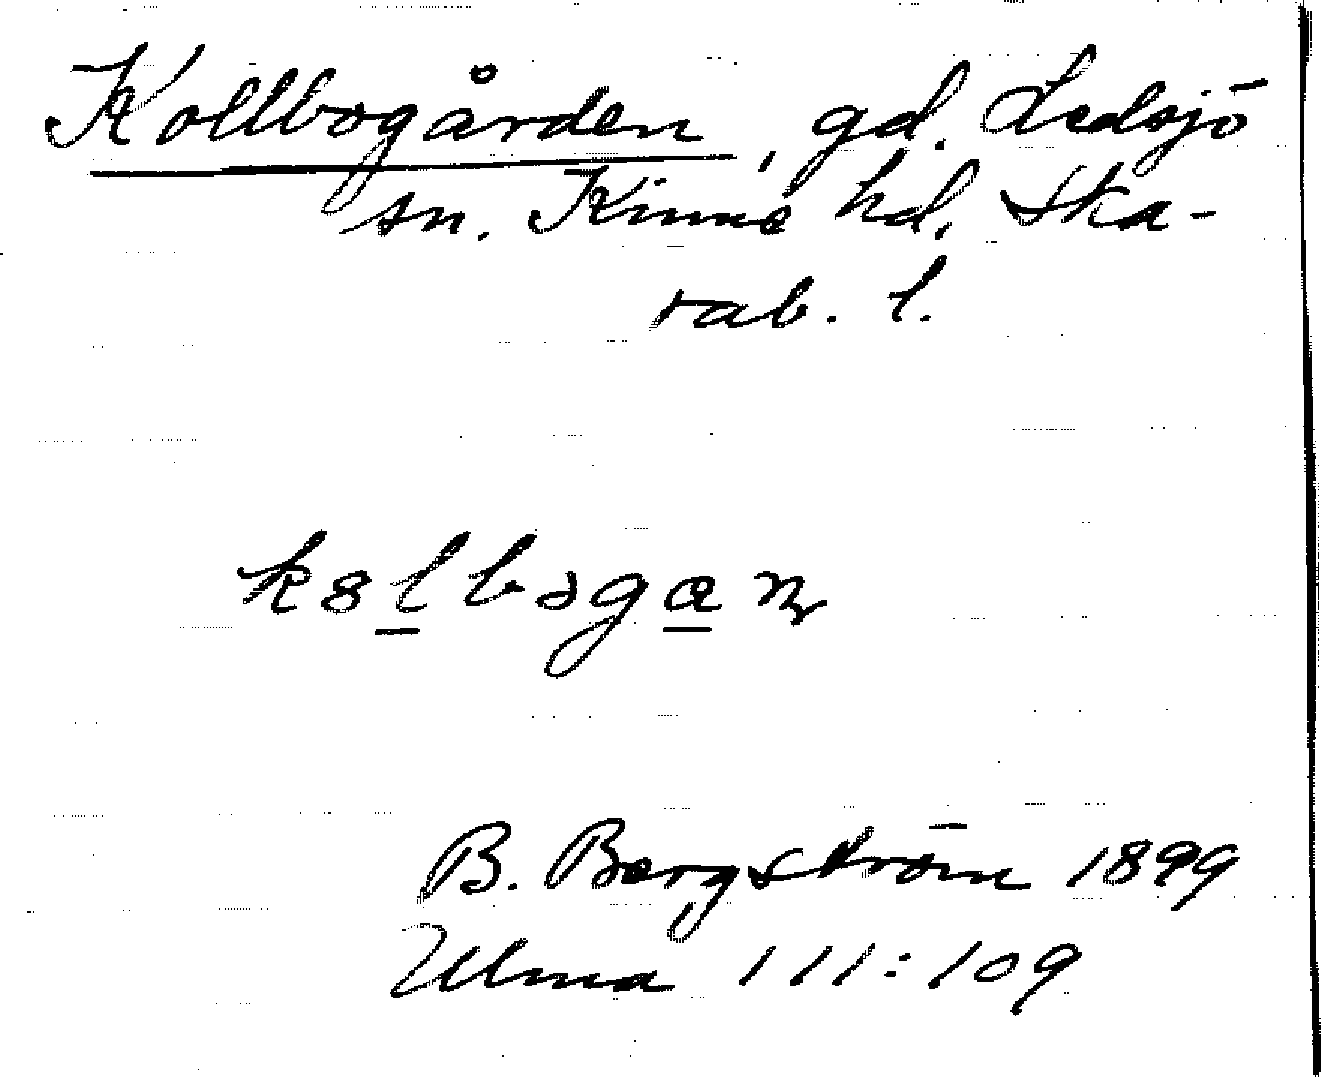 Kollbogården, gd. Ledsjö
sn. Kinne hd. Ska-
rab. l.
k8lbogæn
B. Bergström 1899
Ulma 111:109